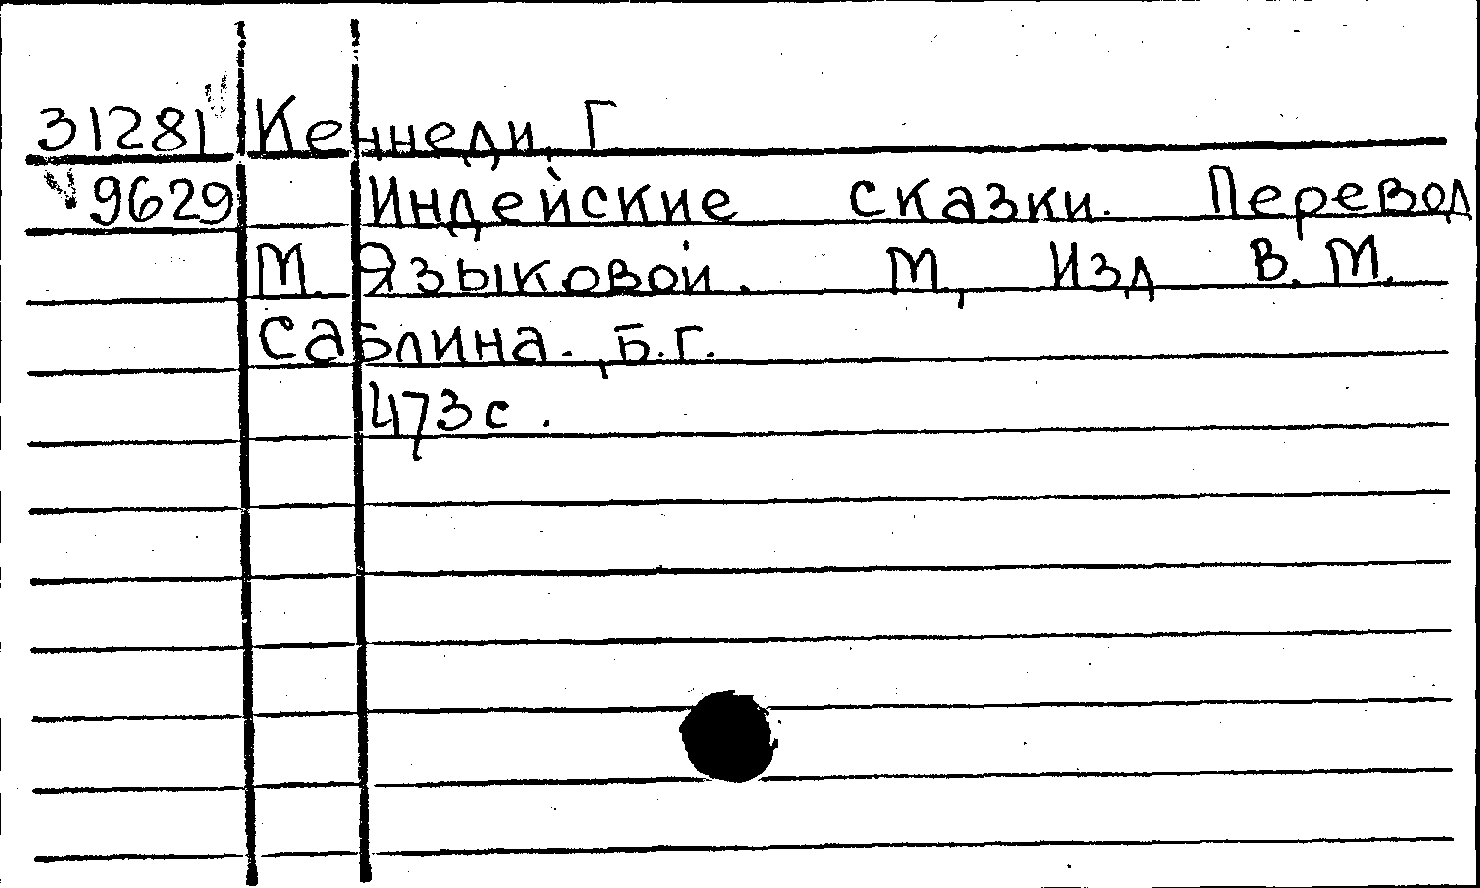 31281 Кеннеди, Г
9629 Индейские сказки. Перевод
М. Языковой. М, Изд В. М.
Саблина. , Б.г.
473с.